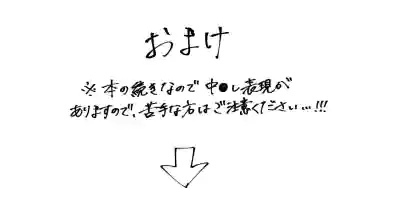 おまけ
※本の続きなので中●し表現が
ありますので、苦手な方はご注意ください…!!!